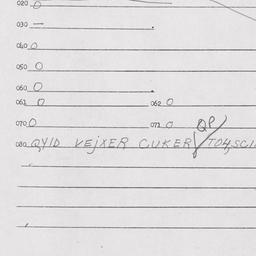 020 0
030 —
040 0
050 0
060 0
061 0 062 0
070 0 071 0 QP
080 QYID VEJXER CUKER / TO4,SC1